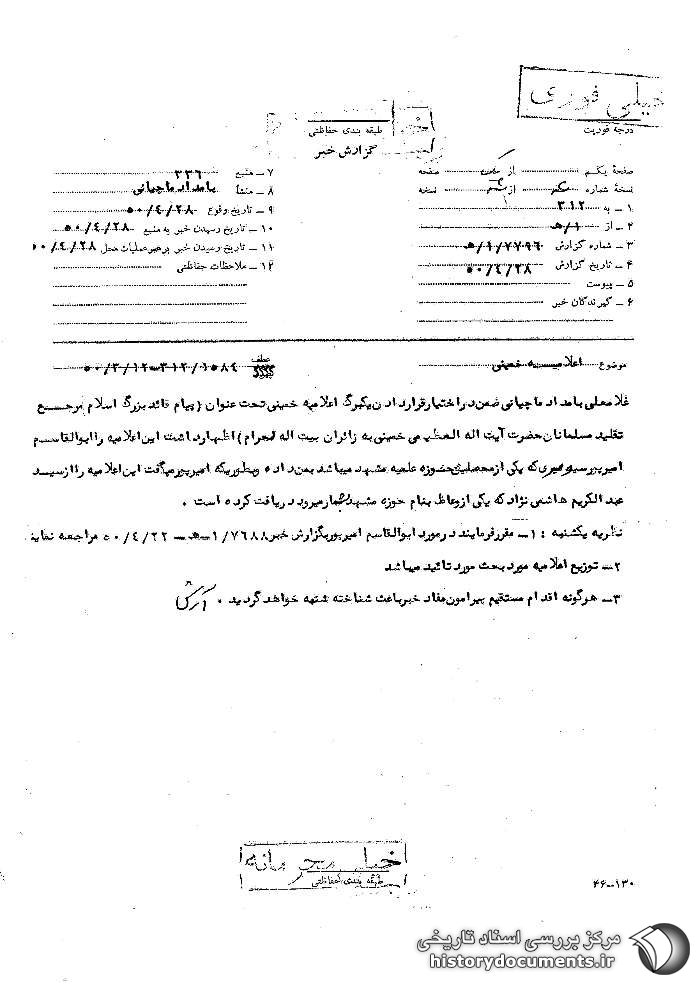 خیلی فوری
درجه فوریت
طبقه بندی حفاظتی
گزارش خبر
صفحهٔ یکم از یک صفحه
نسخهٔ شماره از نسخه
۱ – به ۳۱۲
۲ – از ۱/هـ
۳ – شماره گزارش ۷۷۹۶/۱/هـ
۴ – تاریخ گزارش ۵۰/۴/۲۸
۵ – پیوست
۶ – گیرندگان خبر
۷ – منبع ۳۳۶
۸ – منشأ بامداد ماچیانی
۹ – تاریخ وقوع ۵۰/۴/۲۸
۱۰ – تاریخ رسیدن خبر به منبع ۵۰/۴/۲۸
۱۱ – تاریخ رسیدن خبر برهبر عملیات محل ۵۰/۴/۲۸
۱۲ – ملاحظات حفاظتی
موضوع اعلامیه خمینی عطف ۳۱۲/۱۰۸۴–۵۰/۳/۱۲
غلامعلی بامداد ماچیانی ضمن در اختیار قرار دادن یکبرگ اعلامیه خمینی تحت عنوان (پیام قائد بزرگ اسلام مرجع
تقلید مسلمانان حضرت آیت اله العظمی خمینی به زائران بیت اله الحرام) اظهار داشت این اعلامیه را ابوالقاسم
امیرپور که یکی از محصلین حوزه علمیه مشهد میباشد بمن داده و بطوریکه امیرپور میگفت این اعلامیه را از سید
عبدالکریم هاشمی نژاد که یکی از وعاظ بنام حوزه مشهد بشمار میرود دریافت کرده است .
نظریه یکشنبه : ۱– مقرر فرمایند در مورد ابوالقاسم امیرپور بگزارش خبر ۷۶۸۸/۱–هـ–۵۰/۴/۲۲ مراجعه نمایند
۲– توزیع اعلامیه مورد بحث مورد تائید میباشد
۳– هرگونه اقدام مستقیم پیرامون مفاد خبر باعث شناخته شدن منبع خواهد گردید . آرش
خیلی محرمانه
طبقه بندی حفاظتی
۴۶–۱۳۰
مرکز بررسی اسناد تاریخی
historydocuments.ir